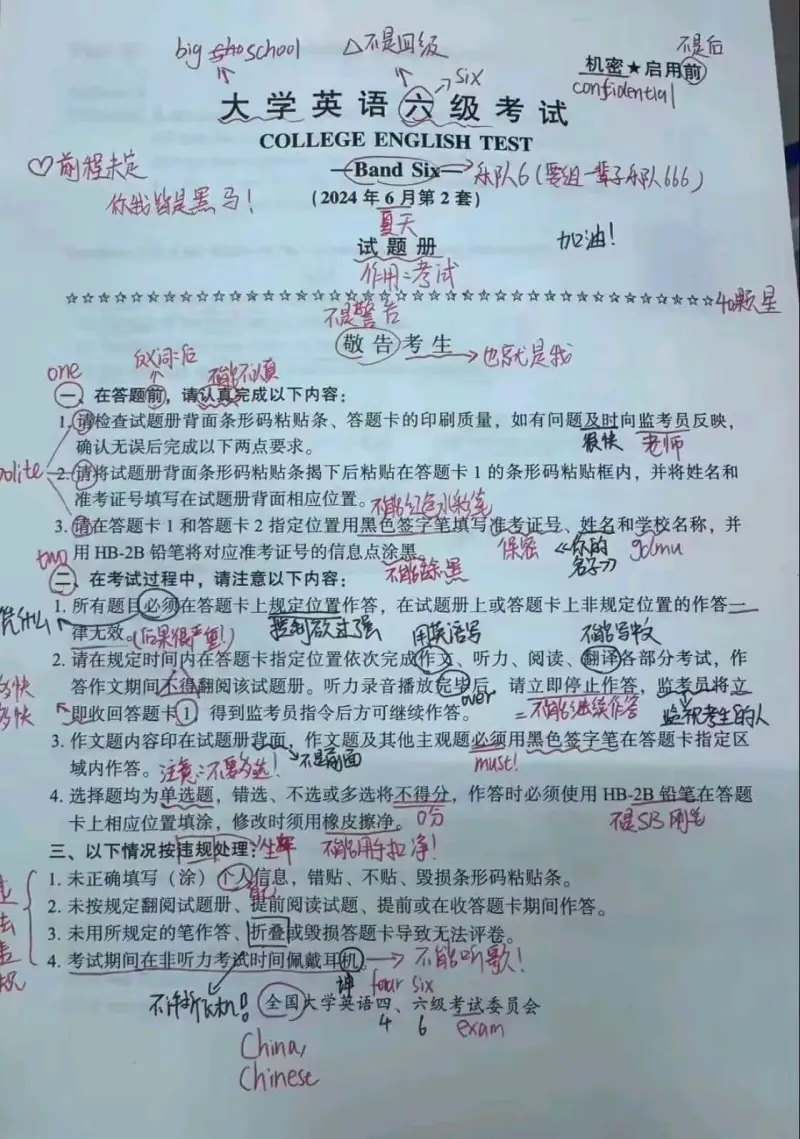 big school
△不是四级
不是后
机密★启用前
confidential
six
大学英语六级考试
COLLEGE ENGLISH TEST
♡前程未定
你我皆是黑马！
—Band Six—
乐队6（要组一辈子乐队666）
（2024年6月第2套）
夏天
加油！
试题册
作用：考试
☆☆☆☆☆☆☆☆☆☆☆☆☆☆☆☆☆☆☆☆☆☆☆☆☆☆☆☆☆☆☆☆☆☆☆☆☆☆☆☆ 40颗星
不是警告
敬告考生
也就是我
one
反义词：后
不能不认真
一、在答题前，请认真完成以下内容：
1. 请检查试题册背面条形码粘贴条、答题卡的印刷质量，如有问题及时向监考员反映，
很快 老师
确认无误后完成以下两点要求。
polite
2. 请将试题册背面条形码粘贴条揭下后粘贴在答题卡 1 的条形码粘贴框内，并将姓名和
准考证号填写在试题册背面相应位置。
不能红色水彩笔
3. 请在答题卡 1 和答题卡 2 指定位置用黑色签字笔填写准考证号、姓名和学校名称，并
保密 《你的名字》 gdmu
用 HB-2B 铅笔将对应准考证号的信息点涂黑。
不能涂黑
two
二、在考试过程中，请注意以下内容：
1. 所有题目必须在答题卡上规定位置作答，在试题册上或答题卡上非规定位置的作答一
凭什么
律无效。
（后果很严重！）
控制欲过强
用英语写
不能写中文
2. 请在规定时间内在答题卡指定位置依次完成作文、听力、阅读、翻译各部分考试，作
答作文期间不得翻阅该试题册。听力录音播放完毕后，请立即停止作答，监考员将立
over
即收回答题卡 1，得到监考员指令后方可继续作答。
=不能继续作答
监视考生的人
3. 作文题内容印在试题册背面，作文题及其他主观题必须用黑色签字笔在答题卡指定区
不是前面
must!
域内作答。
注意：不要多选！
4. 选择题均为单选题，错选、不选或多选将不得分，作答时必须使用 HB-2B 铅笔在答题
0分
不是SB钢笔
卡上相应位置填涂，修改时须用橡皮擦净。
不能用手扣净！
三、以下情况按违规处理：
1. 未正确填写（涂）个人信息，错贴、不贴、毁损条形码粘贴条。
2. 未按规定翻阅试题册、提前阅读试题、提前或在收答题卡期间作答。
3. 未用所规定的笔作答、折叠或毁损答题卡导致无法评卷。
4. 考试期间在非听力考试时间佩戴耳机。
不能听歌！
坤
four six
不许折飞机！
全国大学英语四、六级考试委员会
4 6 exam
China,
Chinese